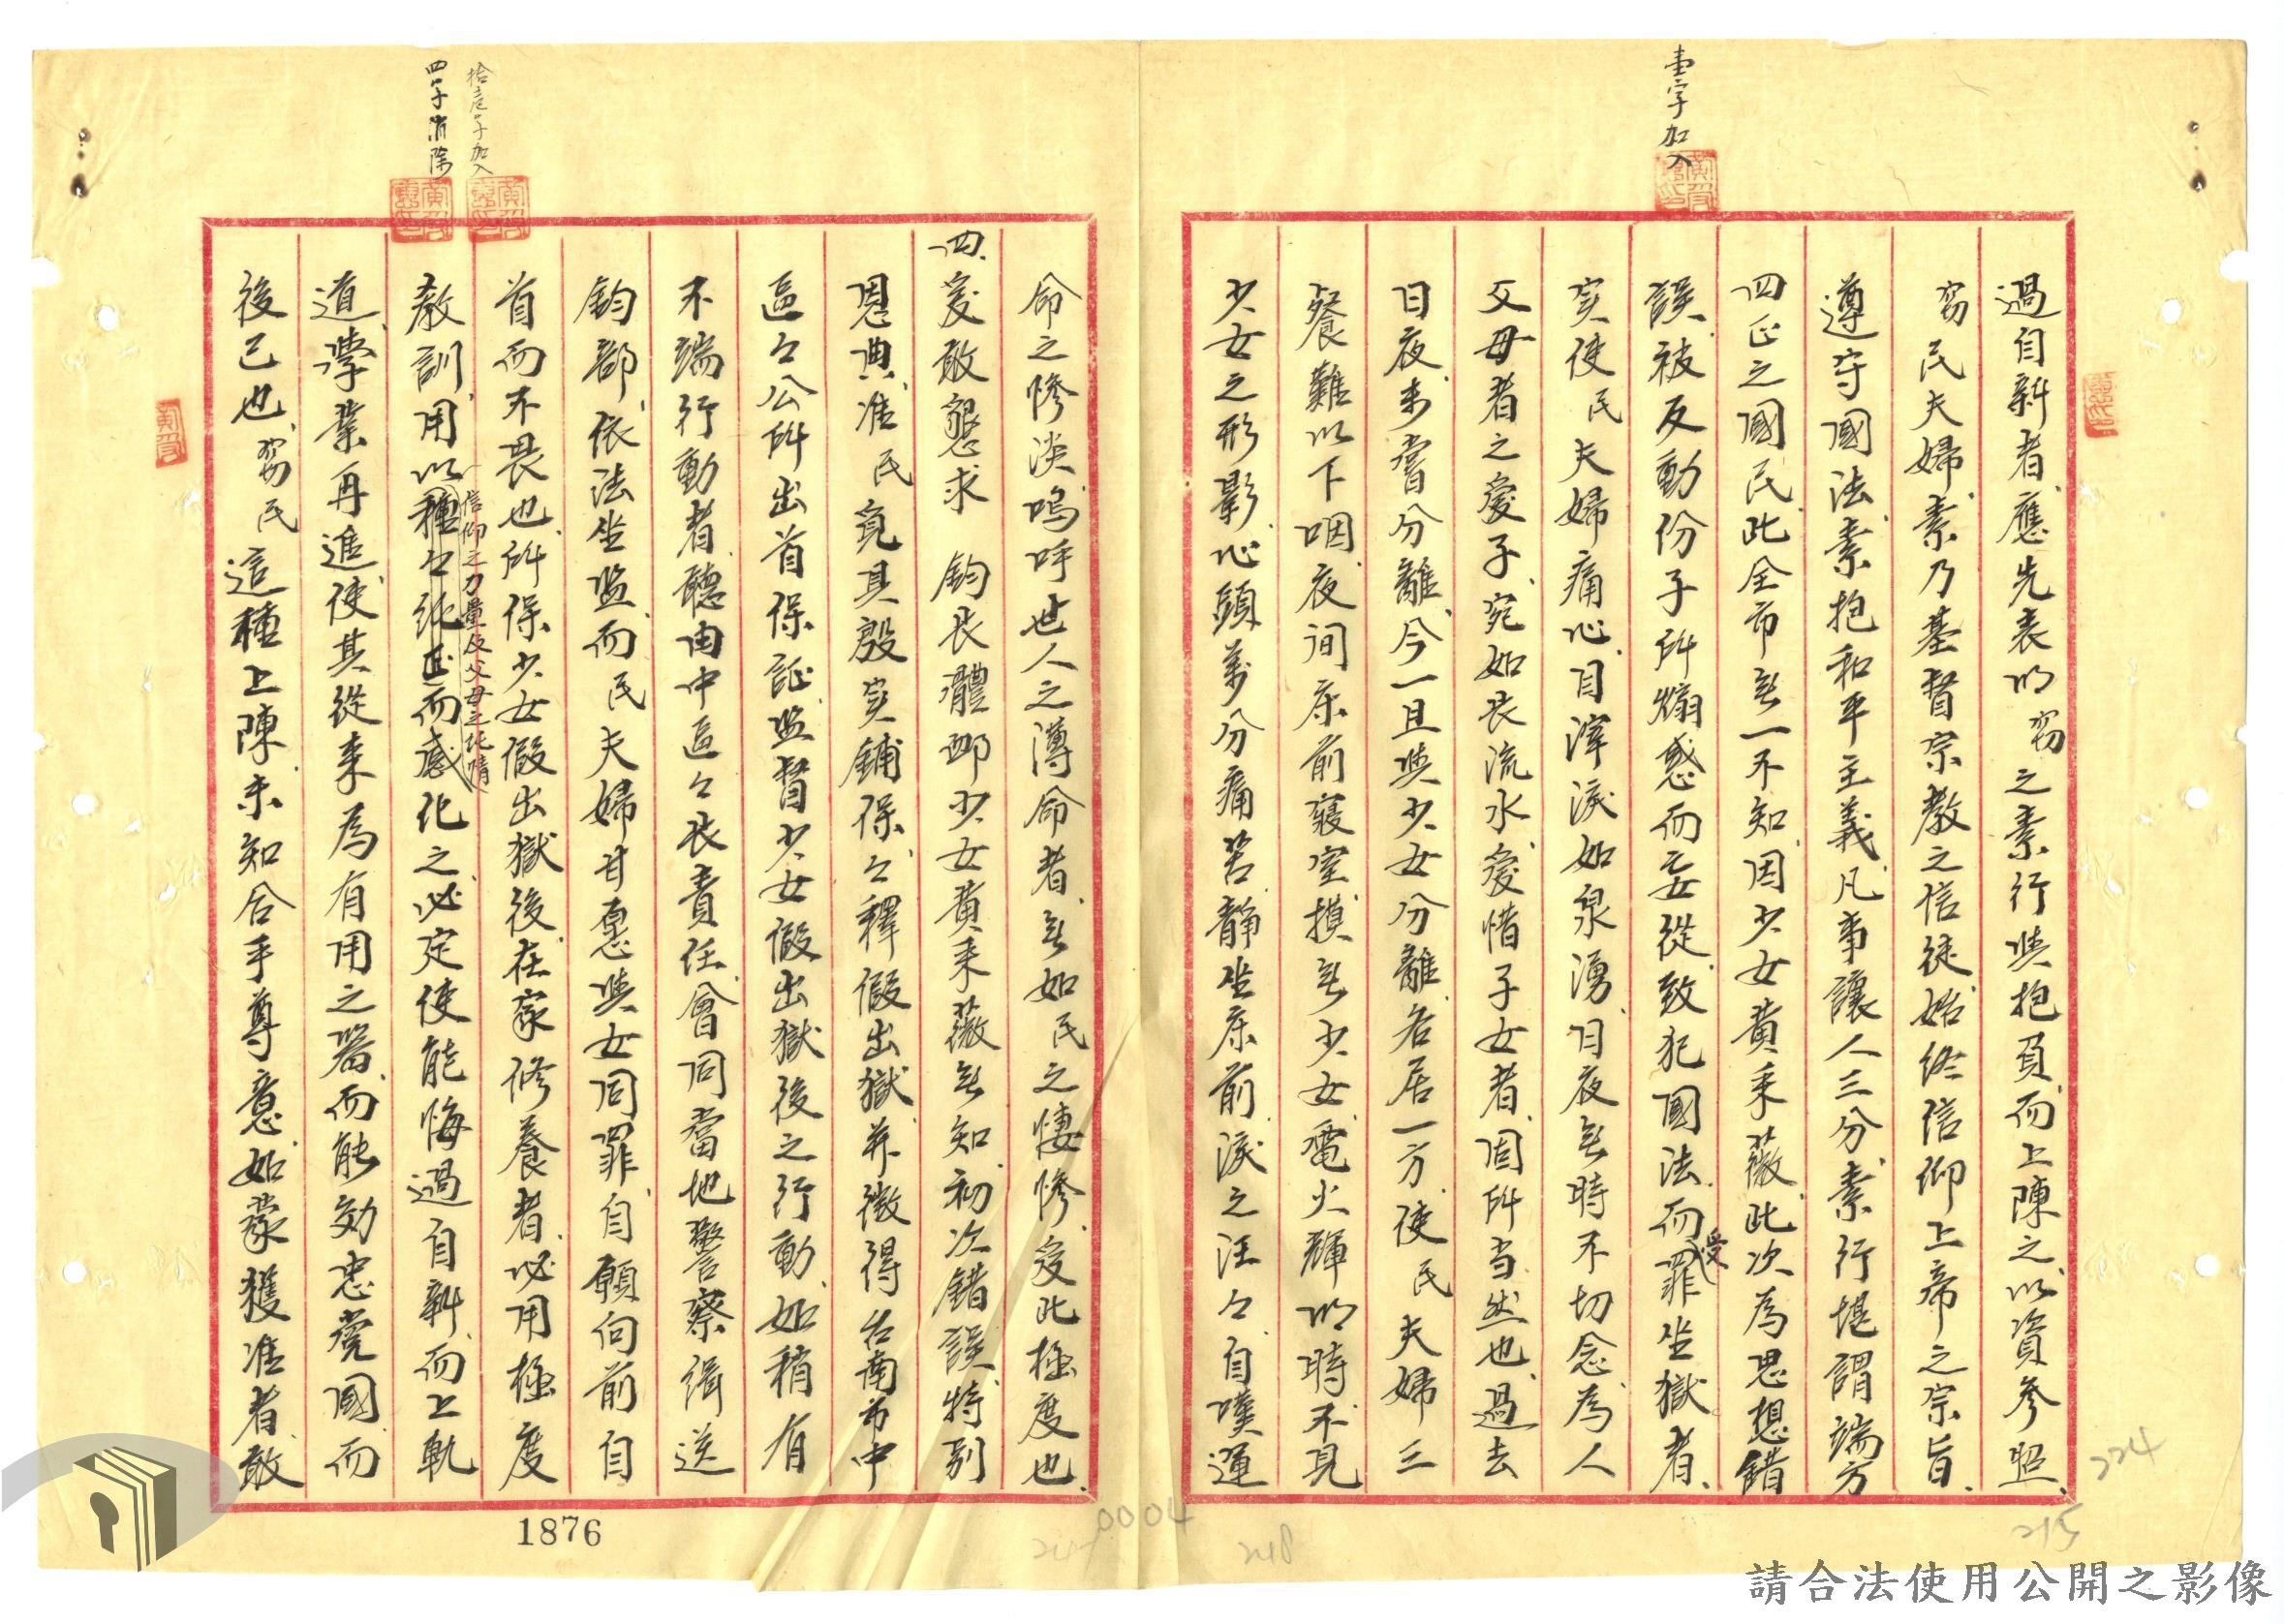 壹字加入
過自新者、應先表明窃之素行與抱負、而上陳之、以資參照、
窃民夫婦、素乃基督宗教之信徒、始終信仰上帝之宗旨、
遵守國法、素抱和平主義、凡事讓人三分、素行堪謂端方
四正之國民、此全市無一不知、因少女黃采薇、此次為思想錯
誤、被反動份子所煽惑而妄從、致犯國法、而受罪坐獄者、
实使民夫婦痛心、目滓淚如泉湧、日夜無時不切念、為人
父母者之愛子、宛如長流水、愛惜子女者、固所当然也、過去
日夜、未嘗分離、今一旦與少女分離、各居一方、使民夫婦三
餐難以下咽、夜间床前寢室摸無少女、電火輝明時、不見
少女之形影、心頭萬分痛苦、靜坐床前、淚之汪々自嘆運
命之慘淡、嗚呼世人之薄命者、無如民之悽慘、受此極度也、
四、爰敢懇求 鈞長體卹少女黃采薇無知初次錯誤、特別
恩典、准民覓具殷实鋪保、々釋假出獄、并徵得台南市中
區々公所出首保証、监督少女假出獄後之行動、如稍有
不端行動者、聽由中區々長責任、會同當地警察緝送
鈞部、依法坐监、而民夫婦甘愿與女同罪、自願向前自
首而不畏也、所保少女假出獄後、在家修養者、必用極度
教訓、用以種々純正而感化之、必定使能悔過自新、而上軌
信仰之力量及父母之純情
道、學業再進、使其從來為有用之器、而能効忠党國、而
後已也、窃民這種上陳、未知合乎尊意、如蒙獲准者、敢
拾壹字加入
四字消除
1876
0004
224
215
218
請合法使用公開之影像